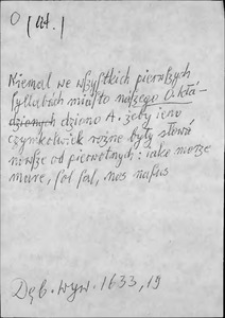 O (lit.)
Niemal we wszystkich pierwszych
syllabach miasto naszego O. kłá-
dzionych dziono A. żeby ieno
czymkolwiek rożne były słowa
nowsze od pierwotnych: iako morze
mare, sol sal, nos nasus
Dęb. wyw. 1633, 19